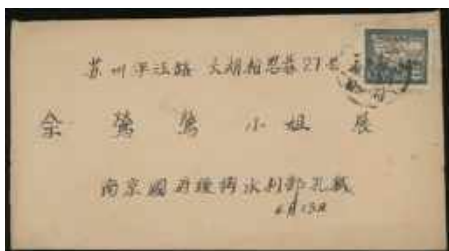 苏州平江路 大胡相思巷27号
余 莺 莺 小 姐 展
南京国府后街水利部孔缄
6月13日